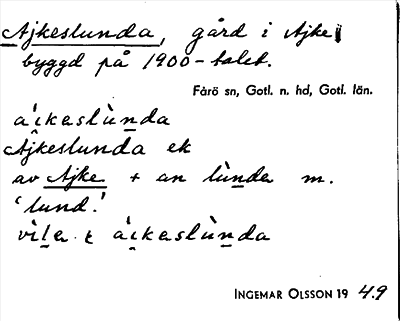 Ajkeslunda, gård i Ajke
byggd på 1900-talet.
Fårö sn, Gotl. n. hd, Gotl. län.
ái̯kaslùnda
Ajkeslunda ek
av Ajke + an lùnda m.
'lund.'
vìla ɩ ái̯kaslùnda
INGEMAR OLSSON 19 49